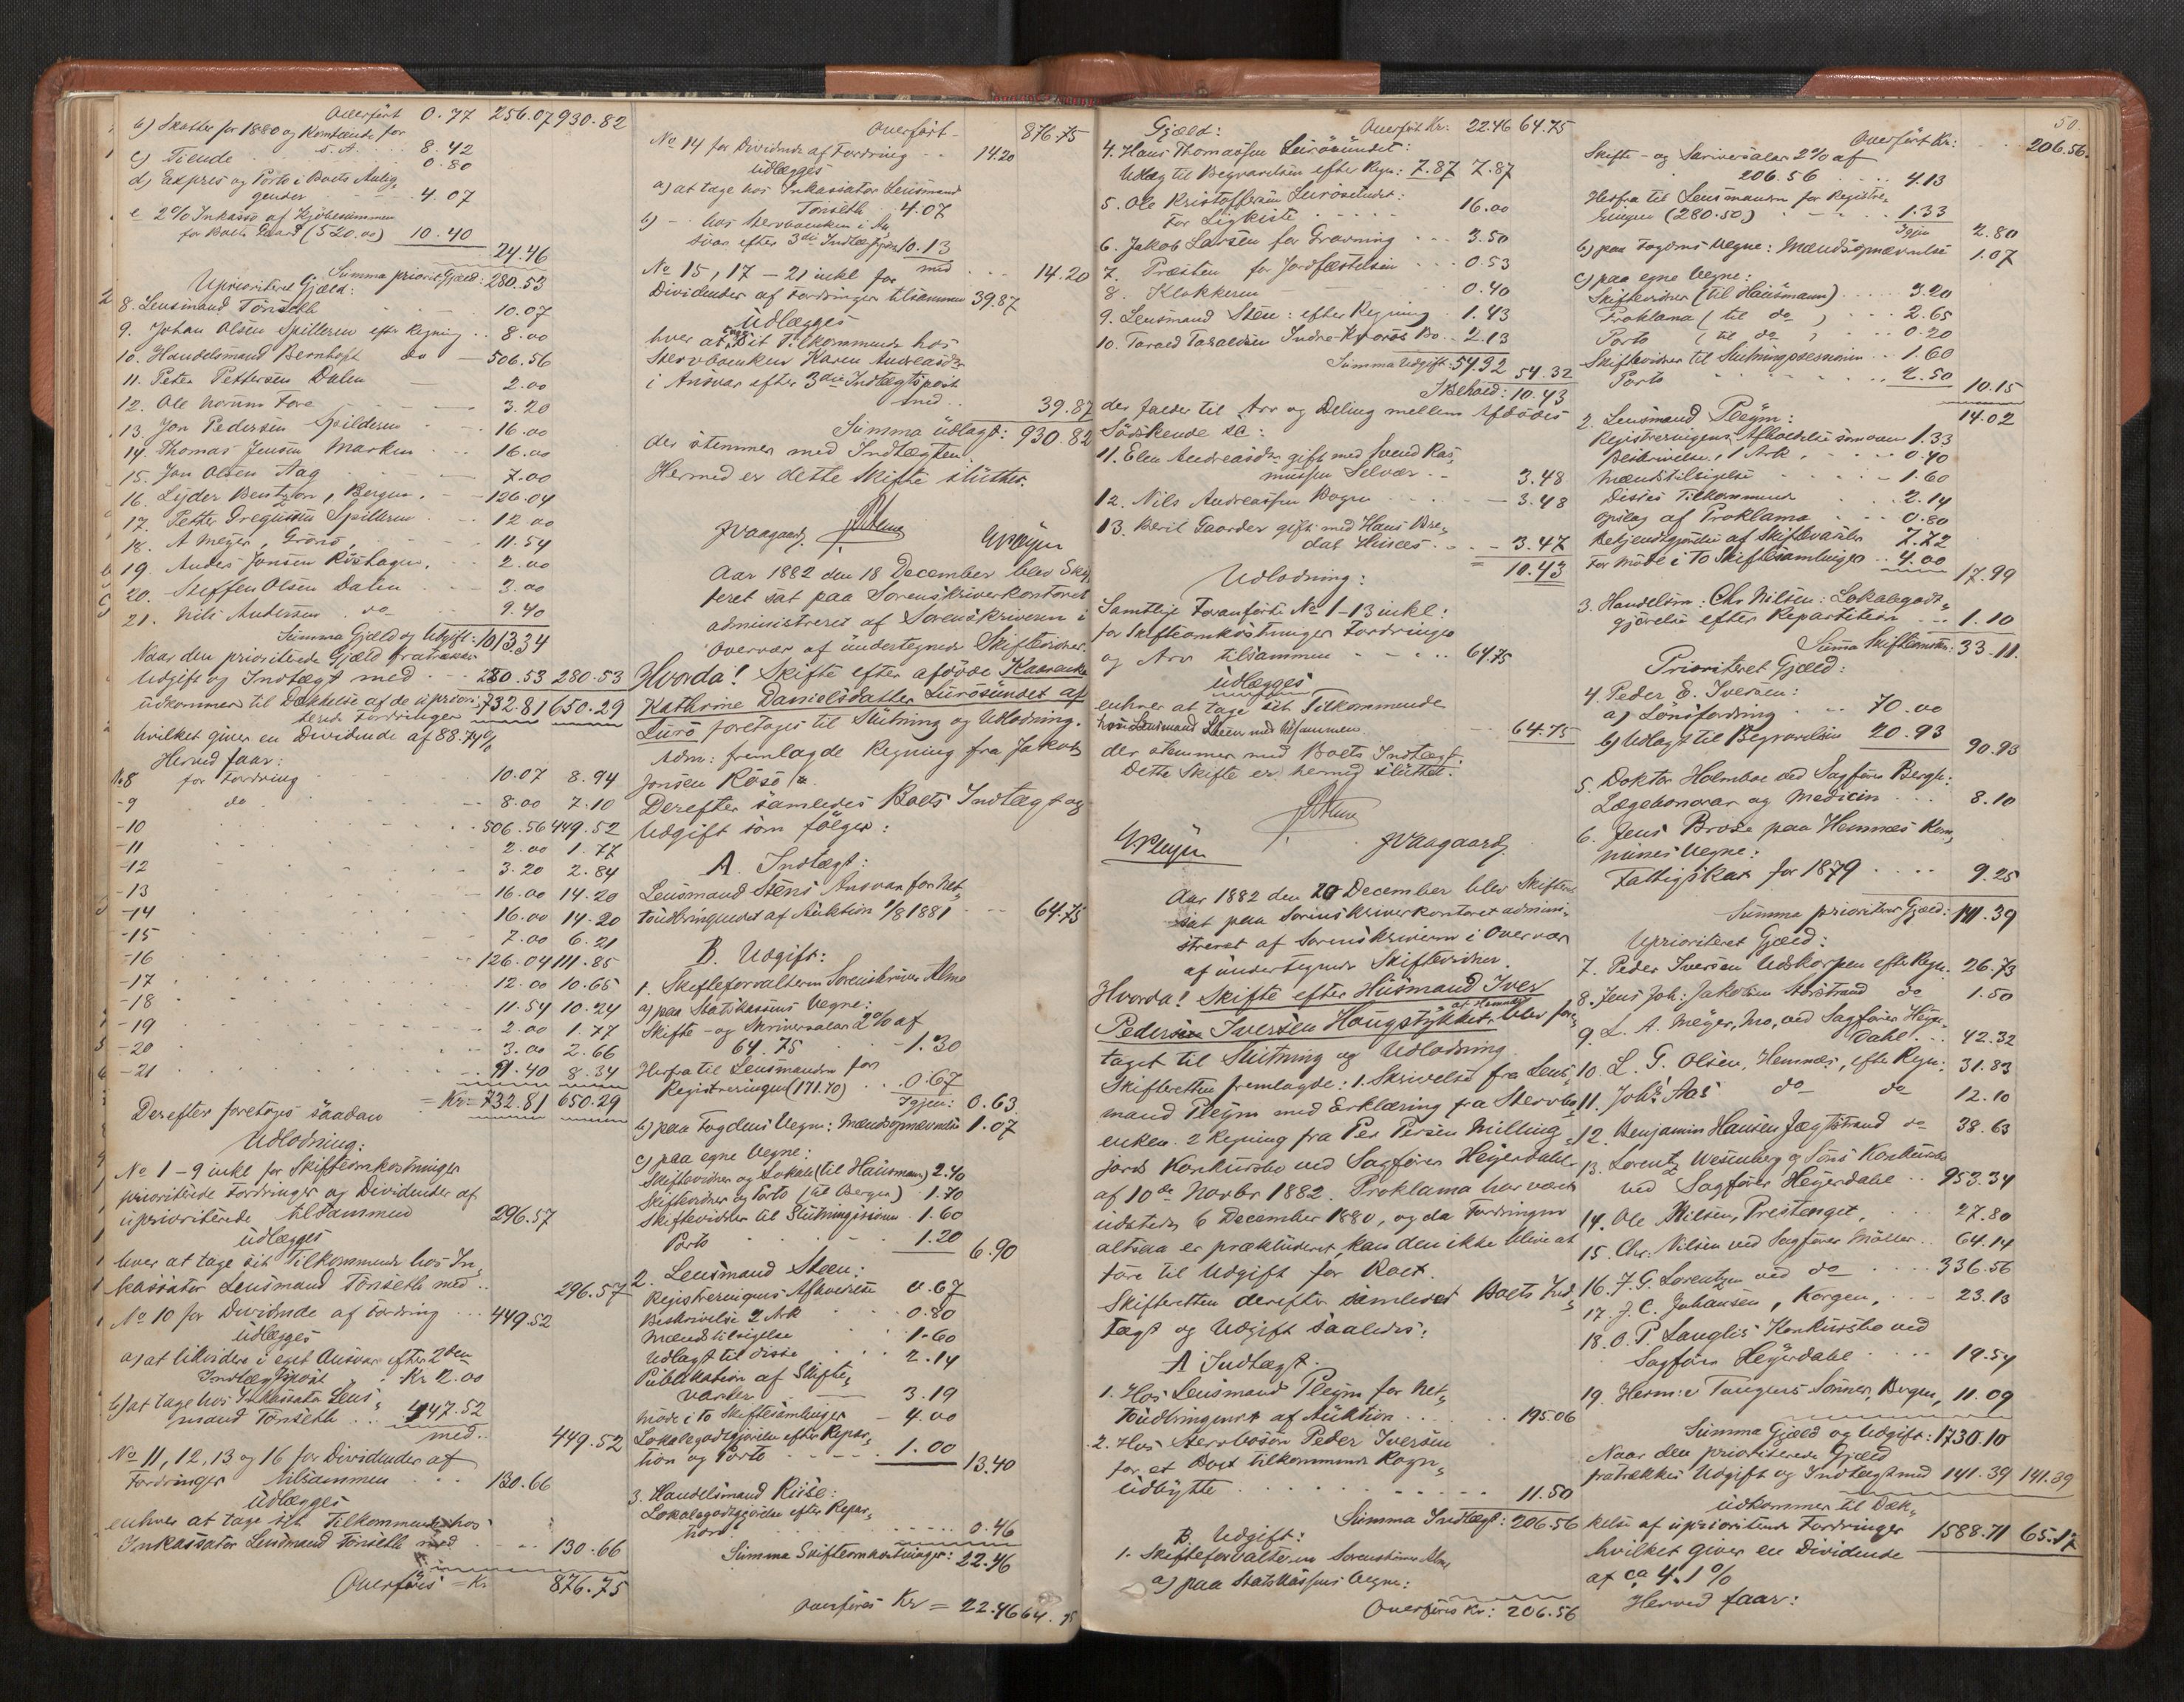 Overført 0.77 256.07 930.82
b) Skatter for 1880 og Korntiende for
s. A. 8.42
c) Tiende 0.80
d) Expres og Porto i Boets Anlig,
gender 4.07
e 2% Inkasso af Kjøbesummen
for Boets Gaard (520.00) 10.40
24.46
Summa priorit Gjæld: 280.53
Uprioriteret Gjæld:
8. Lensmand Tönseth 10.07
9. Johan Olsen Spilderen efter Regning 8.00
10. Handelsmand Bernhoft do 506.56
11. Peter Pettersen Dalen 2.00
12. Ole Norum Fore 3.20
13. Jon Pedersen Spilderen 16.00
14. Thomas Jensen Marken 16.00
15. Jon Olsen Aag 7.00
16. Lyder Bentzon, Bergen. 126.04
17. Petter Gregusen Spilderen 12.00
18. A Meyer, Grönö, 11.54
19. Anders Jonsen Röshagen. 2.00
20. Steffen Olsen Dalen 3.00
21. Nils Andersen do 9.40
Summa Gjæld og Udgift: 1013.34
Naar den prioriterede Gjæld fratrækkes
Udgift og Indtægt med 280.53 280.53
udkommer til Dækkelse af de upriori-
terede Fordringer 732.81 650.29
hvilket giver en Dividende af 88.74%
Herved faar:
No 8 for Fordring 10.07 8.94
-9 do 8.00 7.10
-10 506.56 449.52
-11 2.00 1.77
-12 3.20 2.84
-13 16.00 14.20
-14 16.00 14.20
-15 7.00 6.21
-16 126.04 111.85
-17 12.00 10.65
-18 11.54 10.24
-19 2.00 1.77
-20 3.00 2.66
-21 9.40 8.34
= Kr = 732.81 650.29
Derefter foretoges saadan
Udlodning:
No 1-9 inkl for Skifteomkostninger
prioriterede Fordringer og Dividender af
uprioriterede tilsammen 296.57
udlægges
hver at tage sit Tilkommende hos In,
kassator Lensmand Tönseth med 296.57
No 10 for Dividende af Fordring 449.52
udlægges
a) at likvidere i eget Ansvar efter 2den
Indtægtspost Kr 2.00
b) at tage hos Inkassator Lens,
mand Tönseth 447.52
med 449.52
No 11, 12, 13 og 16 for Dividender af
Fordringer tilsammen 130.66
udlægges
enhver at tage sit Tilkommende hos
Inkassator Lensmand Tönseth med 130.66
Overføres = Kr 876.75
Overført 876.75
No 14 for Dividende af Fordring 14.20
udlægges
a) at tage hos Inkassator Lensmand
Tönseth 4.07
b) - hos Stervboenken i An,
svar efter 3die Indtægtspost 10.13
med 14.20
No 15, 17 - 21 inkl for
Dividender af Fordringer tilsammen 39.87
udlægges
hver at tage sit Tilkommende hos
Stervboenken Karen Andreasdr
i Ansvar efter 3die Indtægtspost
med 39.87
Summa udlagt: 930.82
der stemmer med Indtægten.
Hermed er dette Skifte sluttet.
JVaagaard
Aar 1882 den 18 December blev Skif,
teret sat paa Sorenskriverkontoret
administreret af Sorenskriveren i
Overvær af undertegnede Skiftevidner.
Hvorda! Skifte efter afdøde Karen
Kathrine Danielsdatter Lurösundet af
Lurö foretoges til Slutning og Udlodning.
Adm: fremlagde Regning fra Jakob
Jonsen Rösö
Derefter samledes Boets Indtægt og
Udgift som følger:
A. Indtægt:
Lensmand Stens Ansvar for Net,
toudbringendet af Auktion 1/8 1881 64.75
B. Udgift:
1. Skifteforvalteren Sorenskriver Alme
a) paa Statskassens Vegne:
Skifte- og Skriversalær 2% af
64.75 1.30
Herfra til Lensmanden for
Registreringen (171.70) 0.67
Igjen: 0.63
b) paa Fogdens Vegne: Mændsopnævnelse 1.07
c) paa egne Vegne:
Skiftevidner og Lokale (til Hausmann) 2.40
Skiftevidner og Porto (til Bergen) 1.70
Skiftevidner til Slutningssession 1.60
Porto 1.20
6.90
2. Lensmand Steen:
Registreringens Afholdelse 0.67
Beskrivelse 2 Ark 0.80
Mændstilsigelse 1.60
Udlagt til disse 2.14
Publikation af Skifte,
varsler 3.19
Møde i to Skiftesamlinger 4.00
Lokalegodtgjørelse efter Repar,
tion og Porto 1.00
13.40
3. Handelsmand Riise:
Lokalegodtgjørelse efter Repar,
tion 0.46
Summa Skifteomkostninger: 22.46
Overføres Kr = 22.46 64.75
Gjæld: Overført Kr: 22.46 64.75
4. Hans Thomassen Lurösundet:
Udlæg til Begravelsen efter Regn: 7.87 7.87
5. Ole Kristoffersen Lurösundet:
For Ligkiste 16.00
6. Jakob Larsen for Gravning 3.50
7. Præsten for Jordfæstelsen 0.53
8. Klokkeren 0.40
9. Lensmand Steen: efter Regning 1.43
10. Tarald Taraldsen Indre-Kvarös Bo 2.13
Summa Udgift: 54.32 54.32
I Behold: 10.43
der falder til Arv og Deling mellem Afdødes
Södskende sc:
11. Elen Andreasdr gift med Svend Ras,
mussen Selvær 3.48
12. Nils Andreassen Bogen 3.48
13. Berit Gaarder gift med Hans Bre,
dal Husees 3.47
= 10.43
Udlodning:
Samtlige foranførte No 1-13 inkl:
for Skifteomkostninger Fordringer
og Arv tilsammen 64.75
udlægges
enhver at tage sit Tilkommende
hos Lensmand Steen med tilsammen 64.75
der stemmer med Boets Indtægt.
Dette Skifte er hermed sluttet.
JVaagaard
Aar 1882 den 20 December blev Skifteret
sat paa Sorenskriverkontoret admini-
streret af Sorenskriveren i Overvær
af undertegnede Skiftevidner.
Hvorda! Skifte efter Husmand Iver
Pedersen Iversen Haugstykket af Hemnæs blev fore,
taget til Slutning og Udlodning.
Skifteretten fremlagde: 1. Skrivelse fra Lens,
mand Pleym med Erklæring fra Stervbo,
enken. 2 Regning fra Per Persen Milling,
jords Konkursbo ved Sagfører Heyerdahl
af 10de Novbr 1882. Proklama har været
udstedt 6 December 1880, og da Fordringen
altsaa er prækluderet, kan den ikke blive at
føre til Udgift for Boet.
Skifteretten derefter samlede Boets Ind,
tægt og Udgift saaledes:
A Indtægt.
1. Hos Lensmand Pleym for Net,
toudbringendet af Auktion 195.06
2. Hos Stervbosøn Peder Iversen
for et Boet tilkommende Rogn,
udbytte 11.50
Summa Indtægt: 206.56
B. Udgift:
1. Skifteforvalteren Sorenskriver Alme
a) paa Statskassens Vegne:
Overføres Kr: 206.56
50.
Overført Kr: 206.56.
Skifte- og Skriversalær 2% af
206.56 4.13
Herfra til Lensmanden for Registre,
ringen (280.50) 1.33
Igjen 2.80
b) paa Fogdens Vegne: Mændsopnævnelse 1.07
c) paa egne Vegne:
Skiftevidner (til Hausmann) 3.20
Proklama (til do) 2.65
Porto (til do) 0.20
Skiftevidner til Slutningssessionen 1.60
Porto 2.50
10.15
14.02
2. Lensmand Pleym:
Registreringens Afholdelse som oven 1.33
Beskrivelse, 1 Ark 0.40
Mændstilsigelse 1.60
Disses Tilkommende 2.14
Opslag af Proklama 0.80
Bekjendtgjørelse af Skiftevarsler 7.72
For Møde i to Skiftesamlinger 4.00
17.99
3. Handelsm: Chr Nilsen: Lokalegodt,
gjørelse efter Repartition 1.10
Summa Skifteomk: 33.11.
Prioriteret Gjæld:
4. Peder E. Iversen:
a) Lönsfordring 70.00
b) Udlagt til Begravelsen 20.93
90.93
5. Doktor Holmboe ved Sagfører Bergh:
Lægehonorar og Medicin 8.10
6. Jens Brose paa Hemnæs Kom,
munes Vegne:
Fattigskat for 1879 9.25
Summa prioriteret Gjæld: 141.39
Uprioriteret Gjæld:
7. Peder Iversen Udskarpen efter Regn. 26.73
8. Jens Joh: Jakobsen Norstrand do 1.50
9. L. A. Meyer, Mo, ved Sagfører Heyer,
dahl 42.32
10. L. G. Olsen, Hemnæs, efter Regn: 31.83
11. Johs Aas do do 12.10
12. Benjamin Hansen Jægtstrand do 38.63
13. Lorentz Wesenberg & Söns Konkursbo
ved Sagfører Heyerdahl 953.34
14. Ole Nilsen, Prestænget, 27.80
15. Chr. Nilsen ved Sagfører Möller 64.14
16. F. G. Lorentzen ved do 336.56
17. J. C. Johansen, Korgen, 23.13
18. O. P. Langlis Konkursbo ved
Sagfører Heyerdahl 19.54
19. Herm: v Tangens Sönner, Bergen, 11.09
Summa Gjæld og Udgift: 1730.10
Naar den prioriterede Gjæld
fratrækkes Udgift og Indtægt med 141.39 141.39
udkommer til Dæk,
kelse af uprioriterede Fordringer 1588.71 65.17
hvilket giver en Dividende
af ca 4.1%
Herved faar: